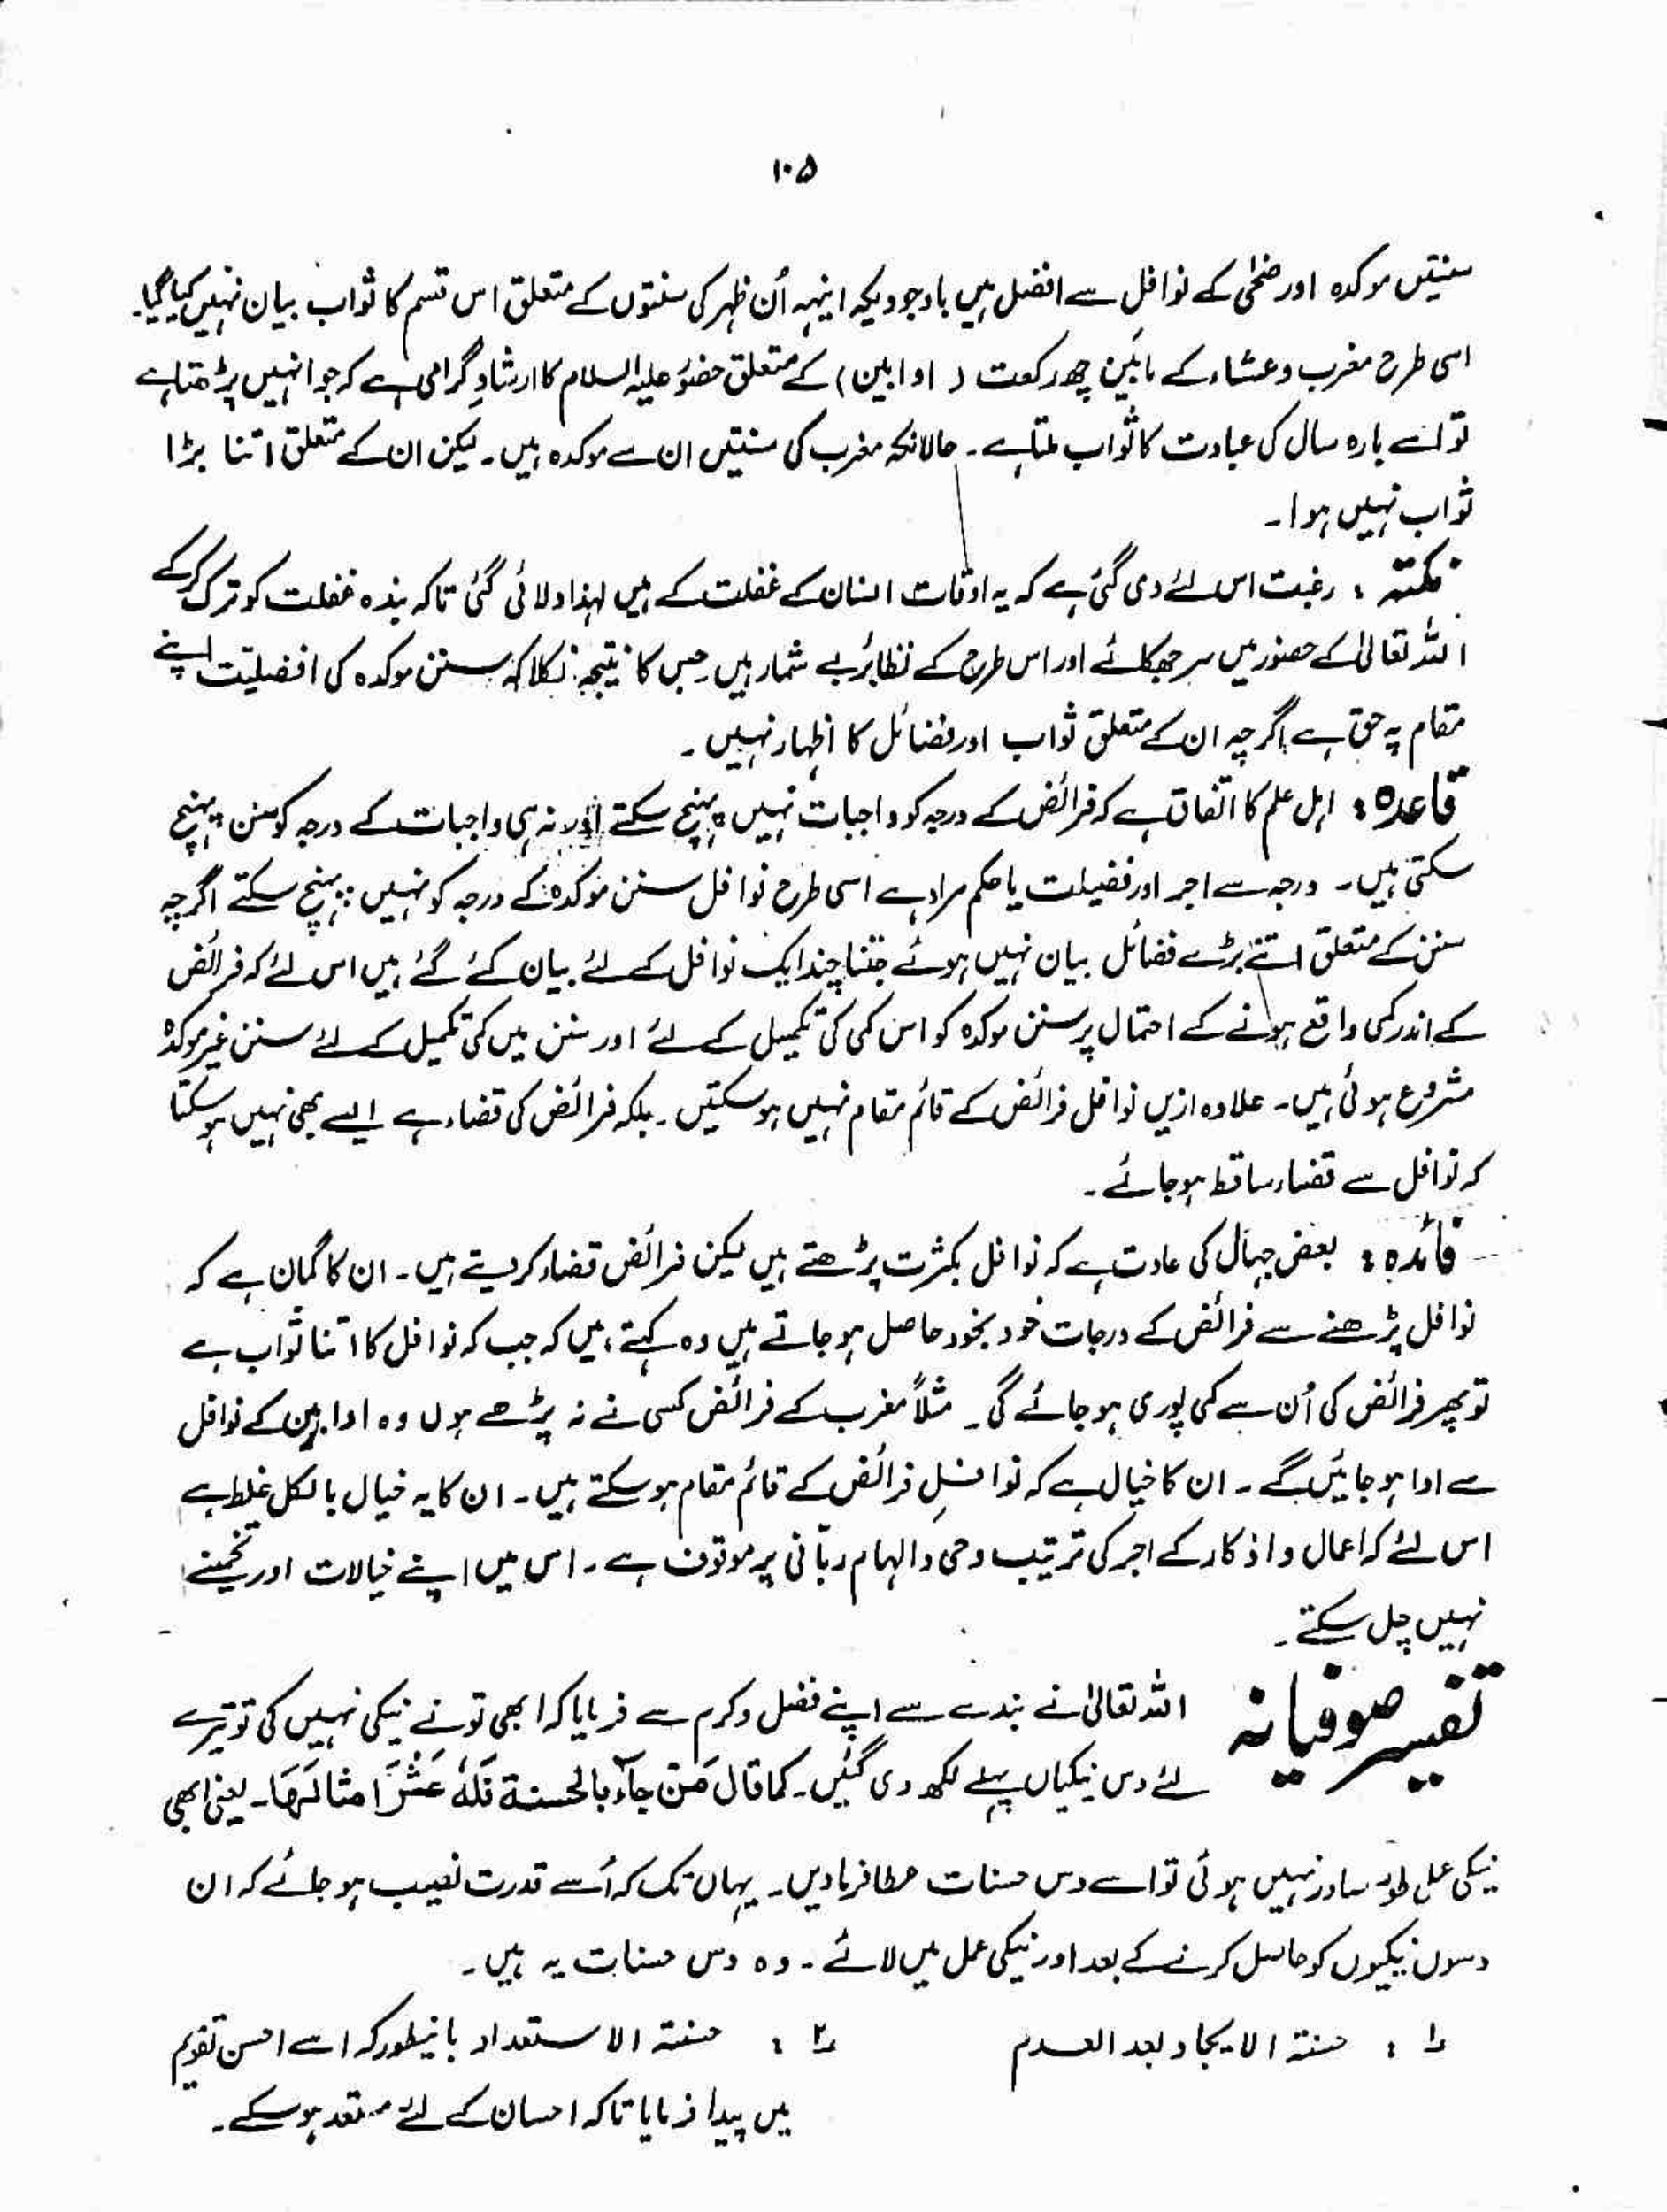 ۱۰۵
سنتیں موکدہ اور ضحٰی کے نوافل سے افضل ہیں باوجودیکہ اینہہ اُن ظہر کی سنتوں کے متعلق اس قسم کا ثواب بیان نہیں کیا گیا۔
اسی طرح مغرب و عشاء کے مابَین چھ رکعت ( اوابین) کے متعلق حضوُر علیہ السلام کا ارشادِ گرامی ہے کہ جو انہیں پڑھتا ہے
تو اسے بارہ سال کی عبادت کا ثواب ملتا ہے۔ حالانکہ مغرب کی سنتیں ان سے موکدہ ہیں۔ لیکن ان کے متعلق اتنا بڑا
ثواب نہیں ہوا۔
نکتہ : رغبت اس لئے دی گئی ہے کہ یہ اوقات انسان کے غفلت کے ہیں لہذا دلائی گئی تاکہ بندہ غفلت کو ترک کرکے
اللہ تعالیٰ کے حضور میں سر جھکائے اور اس طرح کے نظائر بے شمار ہیں جس کا نتیجہ نکلا کہ سنن موکدہ کی افضلیّت اپنے
مقام پہ حق ہے اگرچہ ان کے متعلق ثواب اور فضائل کا اظہار نہیں ۔
قاعدہ : اہل علم کا اتفاق ہے کہ فرائض کے درجہ کو واجبات نہیں پہنچ سکتے اور نہ ہی واجبات کے درجہ کو سنن پہنچ
سکتی ہیں۔ درجہ سے اجر اور فضیلت یا حکم مراد ہے اسی طرح نوافل سنن موکدہ کے درجہ کو نہیں پہنچ سکتے اگرچہ
سنن کے متعلق اتنے بڑے فضائل بیان نہیں ہوئے جتنا چند ایک نوافل کے لئے بیان کئے گئے ہیں اس لئے کہ فرائض
کے اندر کمی واقع ہونے کے احتمال پر سنن موکدہ کو اس کمی کی تکمیل کے لئے اور سنن میں کی تکمیل کے لئے سنن غیر موکدہ
مشروع ہوئی ہیں۔ علاوہ ازیں نوافل فرائض کے قائم مقام نہیں ہو سکتیں۔ بلکہ فرائض کی قضاء ہے ایسے بھی نہیں ہو سکتا
کہ نوافل سے قضاء ساقط ہو جائے۔
فائدہ : بعض جہال کی عادت ہے کہ نوافل بکثرت پڑھتے ہیں لیکن فرائض قضاء کر دیتے ہیں۔ ان کا گمان ہے کہ
نوافل پڑھنے سے فرائض کے درجات خود بخود حاصل ہو جاتے ہیں وہ کہتے ہیں کہ جب کہ نوافل کا اتنا ثواب ہے
تو پھر فرائض کی اُن سے کمی پوری ہو جائے گی۔ مثلاً مغرب کے فرائض کسی نے نہ پڑھے ہوں وہ اوابین کے نوافل
سے ادا ہو جائیں گے۔ ان کا خیال ہے کہ نوافلِ فرائض کے قائم مقام ہو سکتے ہیں۔ ان کا یہ خیال بالکل غلط ہے
اس لئے کہ اعمال و اذکار کے اجر کی ترتیب وحی و الہام ربّانی پر موقوف ہے۔ اس میں اپنے خیالات اور تخمینے
نہیں چل سکتے۔
تفسیر صوفیانہ اللہ تعالیٰ نے بندے سے اپنے فضل و کرم سے فرمایا کہ ابھی تو نے نیکی نہیں کی تو تیرے
لئے دس نیکیاں پہلے لکھ دی گئیں۔ کما قال مَنْ جآءَ بالحسنۃ فَلَہٗ عَشْرَ امثالَہَا۔ یعنی ابھی
نیکی عملی طور صادر نہیں ہوئی تو اسے دس حسنات عطا فرما دیں۔ یہاں تک کہ اُسے قدرت نصیب ہو جائے کہ ان
دسوں نیکیوں کو حاصل کرنے کے بعد اور نیکی عمل میں لائے۔ وہ دس حسنات یہ ہیں۔
۱ : حسنتہ الایجاد بعد العدم ۲ : حسنتہ الاستعداد بانیطور کہ اسے احسن تقویم
میں پیدا فرمایا تاکہ احسان کے لئے مستعد ہو سکے۔